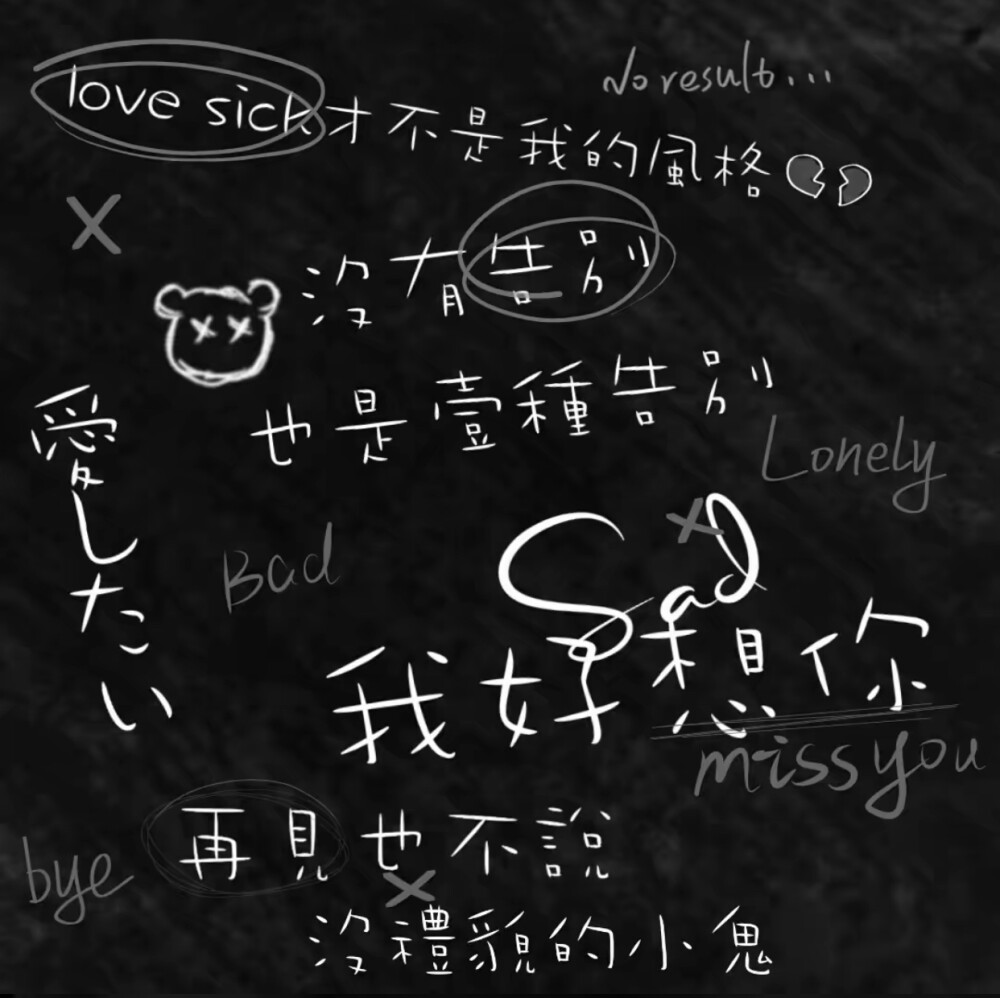 No result...
love sick才不是我的風格
沒有告別
也是壹種告別
愛したい
Lonely
Bad
Sad
我好想你
miss you
再見也不說
bye
沒禮貌的小鬼